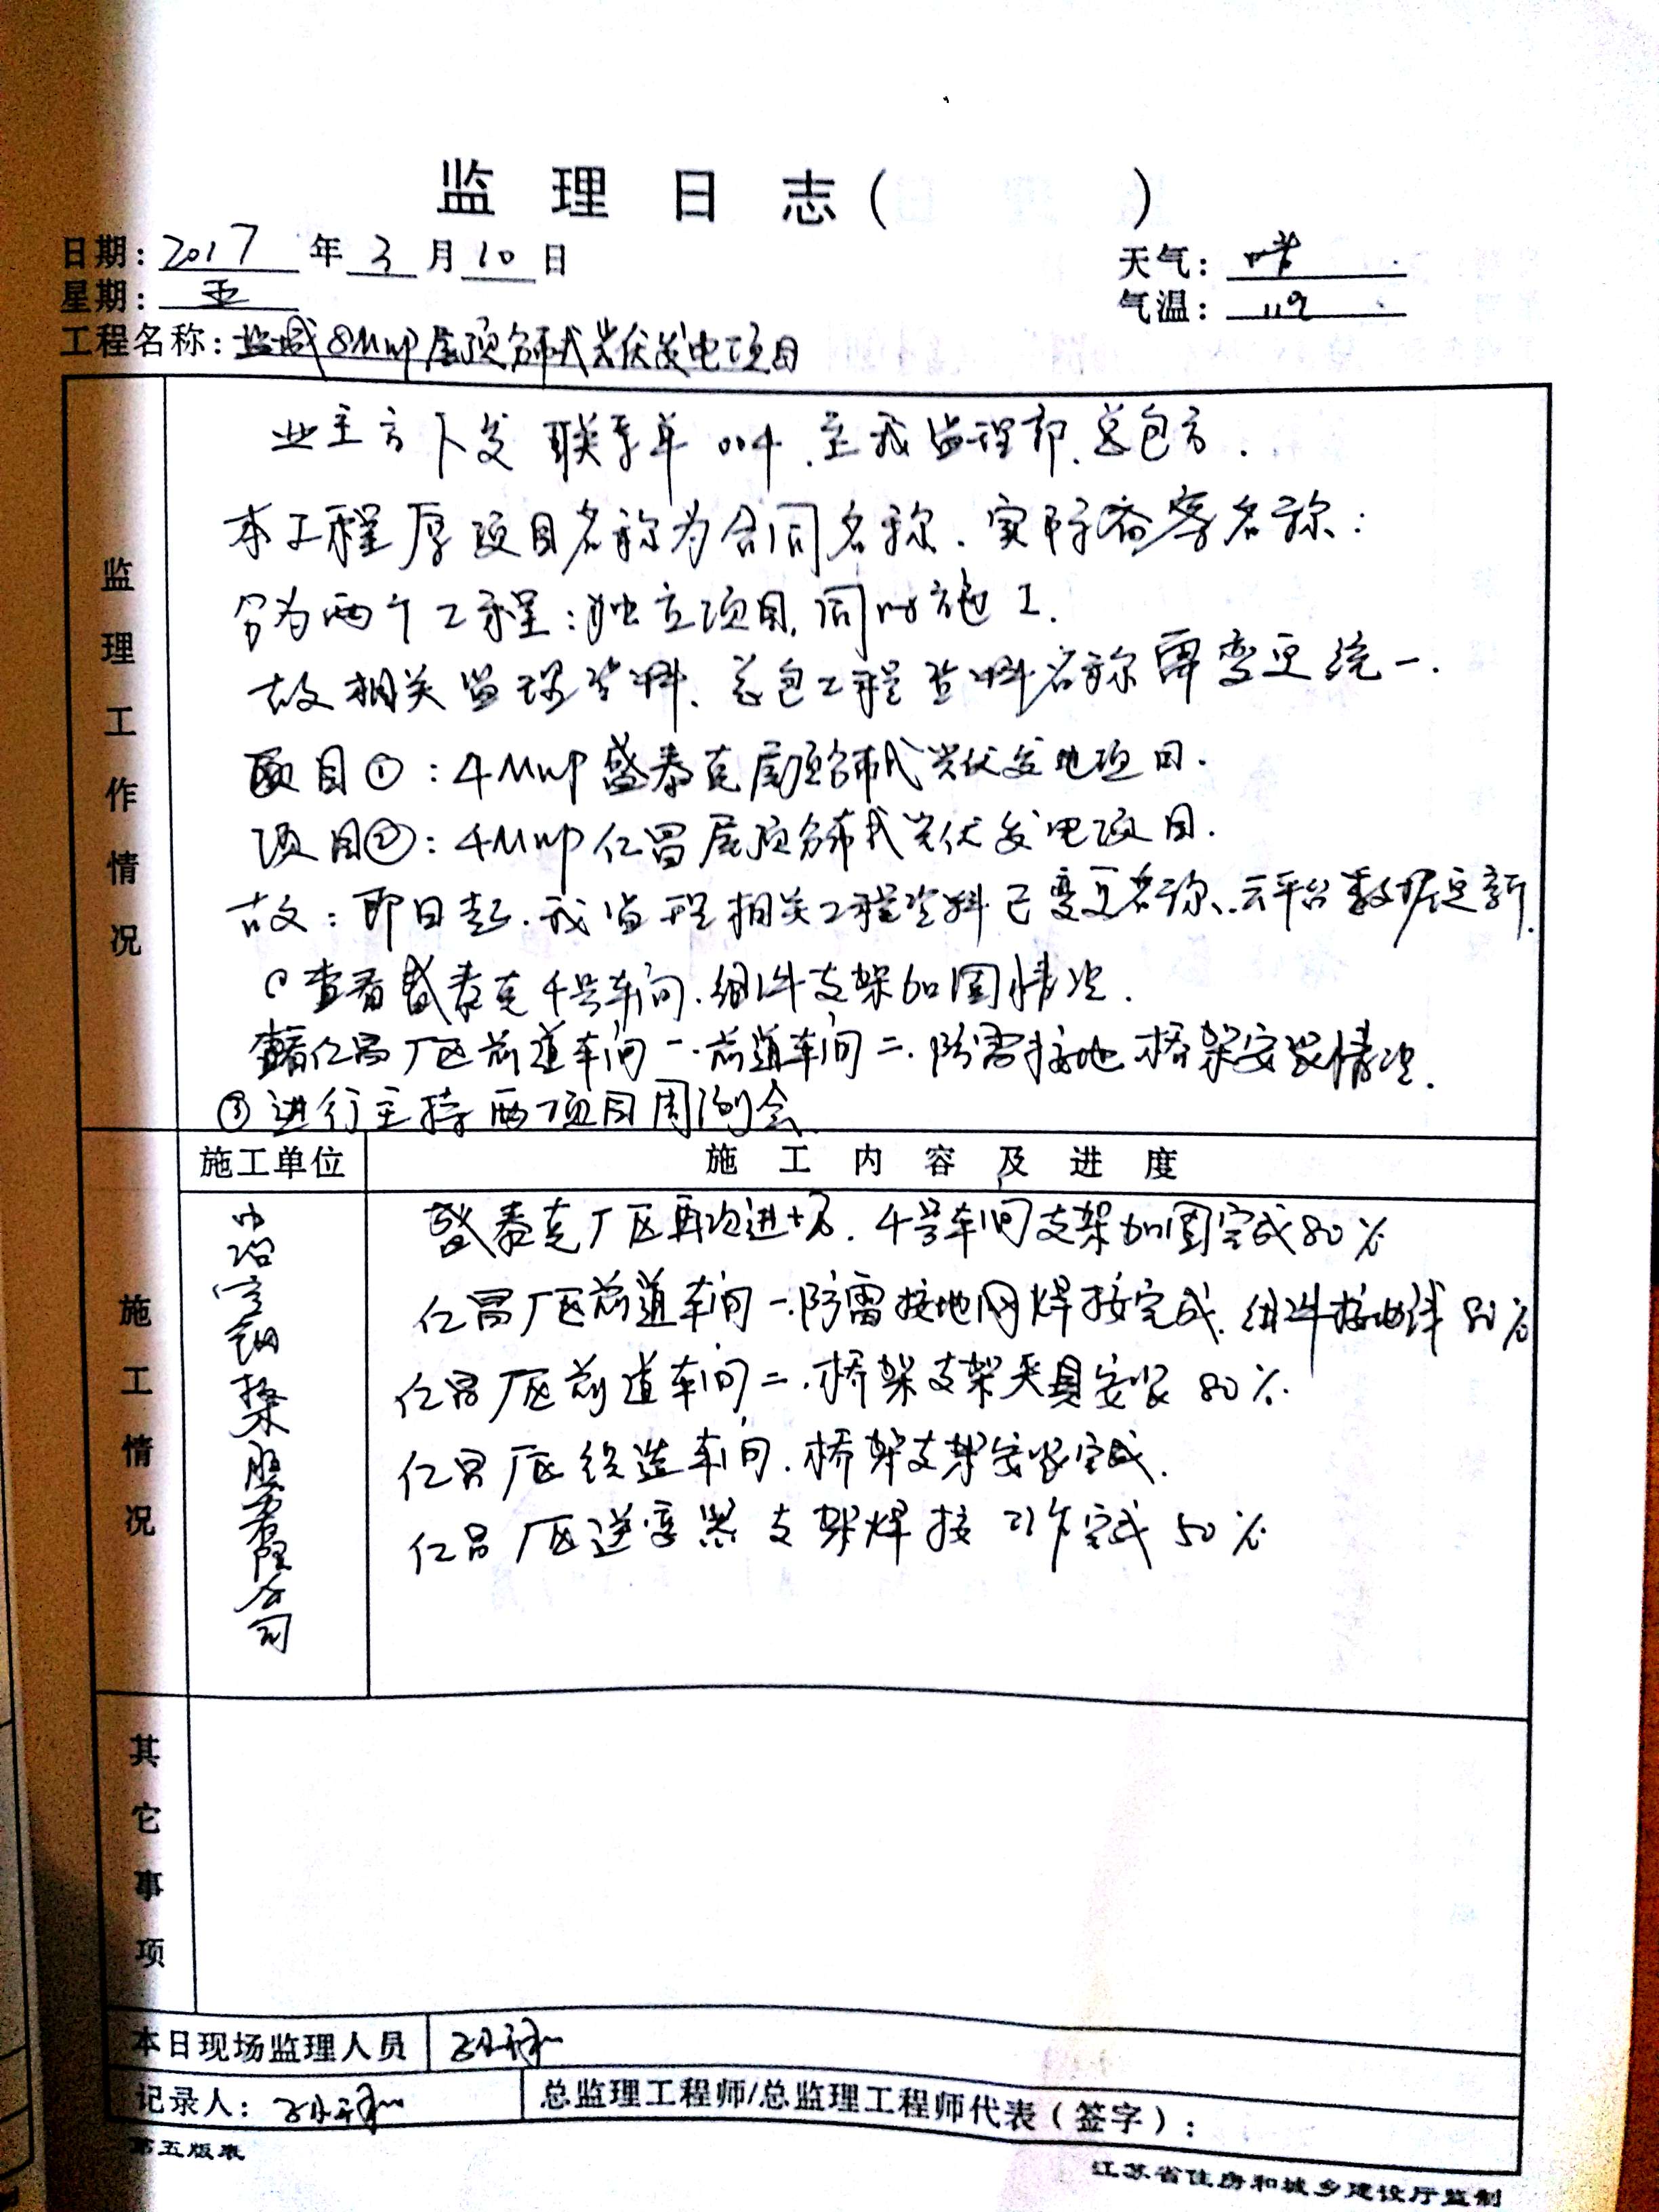 监理日志（ ）
日期：2017年3月10日
天气：晴
星期：五
气温：11℃
工程名称：盐城8MWP屋顶分布式光伏发电项目
监理工作情况
业主方下发联系单004.至我监理部、总包方.
本工程原项目名称为合同名称.实际备案名称：
分为两个工程：独立项目,同时施工.
故相关监理资料、总包工程资料名称需变更统一.
项目①：4MWP盛泰克屋顶分布式光伏发电项目.
项目②：4MWP仁昌屋顶分布式光伏发电项目.
故：即日起.我监理相关工程资料已变更名称、云平台数据更新.
查看盛泰克4号车间.组件支架加固情况.
查看仁昌厂区前道车间一.前道车间二.防雷接地桥架安装情况.
③进行主持两项目周例会.
施工单位
施工内容及进度
施工情况
中冶宝钢 股份有限公司
盛泰克厂区再次进场.4号车间支架加固完成80%
仁昌厂区前道车间一.防雷接地网焊接完成.组件接地线80%
仁昌厂区前道车间二.桥架支架夹具安装80%.
仁昌厂区织造车间.桥架支架安装完成.
仁昌厂区逆变器支架焊接工作完成50%
其它事项
本日现场监理人员
记录人：
总监理工程师/总监理工程师代表（签字）：
第五版表
江苏省住房和城乡建设厅监制